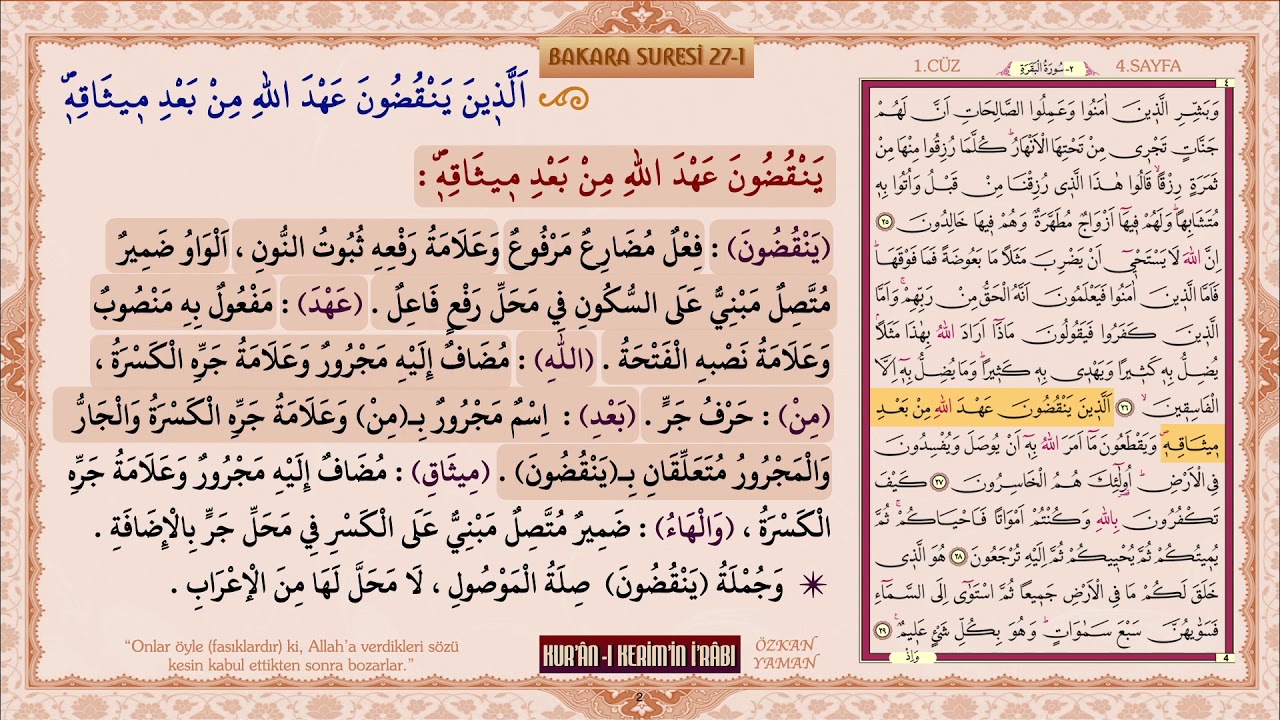 BAKARA SURESİ 27-1
اَلَّذ۪ينَ يَنْقُضُونَ عَهْدَ اللهِ مِنْ بَعْدِ م۪يثَاقِه۪ۖ
يَنْقُضُونَ عَهْدَ اللهِ مِنْ بَعْدِ م۪يثَاقِه۪ۖ :
(يَنْقُضُونَ) : فِعْلٌ مُضَارِعٌ مَرْفُوعٌ وَعَلَامَةُ رَفْعِهِ ثُبُوتُ النُّونِ ، اَلْوَاوُ ضَمِيرٌ
مُتَّصِلٌ مَبْنِيٌّ عَلَى السُّكُونِ فِي مَحَلِّ رَفْعٍ فَاعِلٌ . (عَهْدَ) : مَفْعُولٌ بِهِ مَنْصُوبٌ
وَعَلَامَةُ نَصْبِهِ الْفَتْحَةُ . (اللَّهِ) : مُضَافٌ إِلَيْهِ مَجْرُورٌ وَعَلَامَةُ جَرِّهِ الْكَسْرَةُ ،
(مِنْ) : حَرْفُ جَرٍّ . (بَعْدِ) : اِسْمٌ مَجْرُورٌ بِـ(مِنْ) وَعَلَامَةُ جَرِّهِ الْكَسْرَةُ وَالْجَارُّ
وَالْمَجْرُورُ مُتَعَلِّقَانِ بِـ(يَنْقُضُونَ) . (مِيثَاقِ) : مُضَافٌ إِلَيْهِ مَجْرُورٌ وَعَلَامَةُ جَرِّهِ
الْكَسْرَةُ ، (وَالْهَاءُ) : ضَمِيرٌ مُتَّصِلٌ مَبْنِيٌّ عَلَى الْكَسْرِ فِي مَحَلِّ جَرٍّ بِالْإِضَافَةِ .
✴ وَجُمْلَةُ (يَنْقُضُونَ) صِلَةُ الْمَوْصُولِ ، لَا مَحَلَّ لَهَا مِنَ الْإِعْرَابِ .
“Onlar öyle (fasıklardır) ki, Allah’a verdikleri sözü
kesin kabul ettikten sonra bozarlar.”
KUR’ÂN-I KERİM’İN İ’RÂBI
ÖZKAN
YAMAN
2
1.CÜZ ٢- سُورَةُ الْبَقَرَةِ 4.SAYFA
٤
وَبَشِّرِ الَّذ۪ينَ اٰمَنُوا وَعَمِلُوا الصَّالِحَاتِ اَنَّ لَهُمْ
جَنَّاتٍ تَجْر۪ي مِنْ تَحْتِهَا الْاَنْهَارُۜ كُلَّمَا رُزِقُوا مِنْهَا مِنْ
ثَمَرَةٍ رِزْقًاۙ قَالُوا هٰذَا الَّذ۪ي رُزِقْنَا مِنْ قَبْلُ وَاُتُوا بِه۪
مُتَشَابِهًاۜ وَلَهُمْ ف۪يهَٓا اَزْوَاجٌ مُطَهَّرَةٌ وَهُمْ ف۪يهَا خَالِدُونَ ٢٥
اِنَّ اللهَ لَا يَسْتَحْي۪ٓ اَنْ يَضْرِبَ مَثَلًا مَا بَعُوضَةً فَمَا فَوْقَهَاۜ
فَاَمَّا الَّذ۪ينَ اٰمَنُوا فَيَعْلَمُونَ اَنَّهُ الْحَقُّ مِنْ رَبِّهِمْۚ وَاَمَّا
الَّذ۪ينَ كَفَرُوا فَيَقُولُونَ مَاذَٓا اَرَادَ اللهُ بِهٰذَا مَثَلًاۢ
يُضِلُّ بِه۪ كَث۪يرًا وَيَهْد۪ي بِه۪ كَث۪يرًاۜ وَمَا يُضِلُّ بِه۪ٓ اِلَّا
الْفَاسِق۪ينَۙ ٢٦ اَلَّذ۪ينَ يَنْقُضُونَ عَهْدَ اللهِ مِنْ بَعْدِ
م۪يثَاقِه۪ۖ وَيَقْطَعُونَ مَٓا اَمَرَ اللهُ بِه۪ٓ اَنْ يُوصَلَ وَيُفْسِدُونَ
فِي الْاَرْضِۜ اُو۬لٰٓئِكَ هُمُ الْخَاسِرُونَ ٢٧ كَيْفَ
تَكْفُرُونَ بِاللهِ وَكُنْتُمْ اَمْوَاتًا فَاَحْيَاكُمْۚ ثُمَّ
يُم۪يتُكُمْ ثُمَّ يُحْي۪يكُمْ ثُمَّ اِلَيْهِ تُرْجَعُونَ ٢٨ هُوَ الَّذ۪ي
خَلَقَ لَكُمْ مَا فِي الْاَرْضِ جَم۪يعًا ثُمَّ اسْتَوٰٓى اِلَى السَّمَٓاءِ
فَسَوّٰيهُنَّ سَبْعَ سَمٰوَاتٍۜ وَهُوَ بِكُلِّ شَيْءٍ عَل۪يمٌ۟ ٢٩
وَاِذْ
4